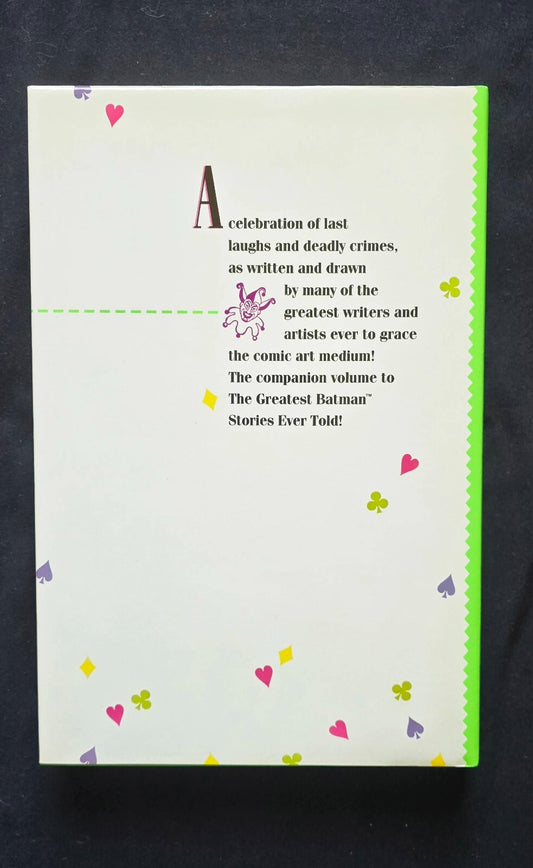 A celebration of last
laughs and deadly crimes,
as written and drawn
by many of the
greatest writers and
artists ever to grace
the comic art medium!
The companion volume to
The Greatest Batman™
Stories Ever Told!